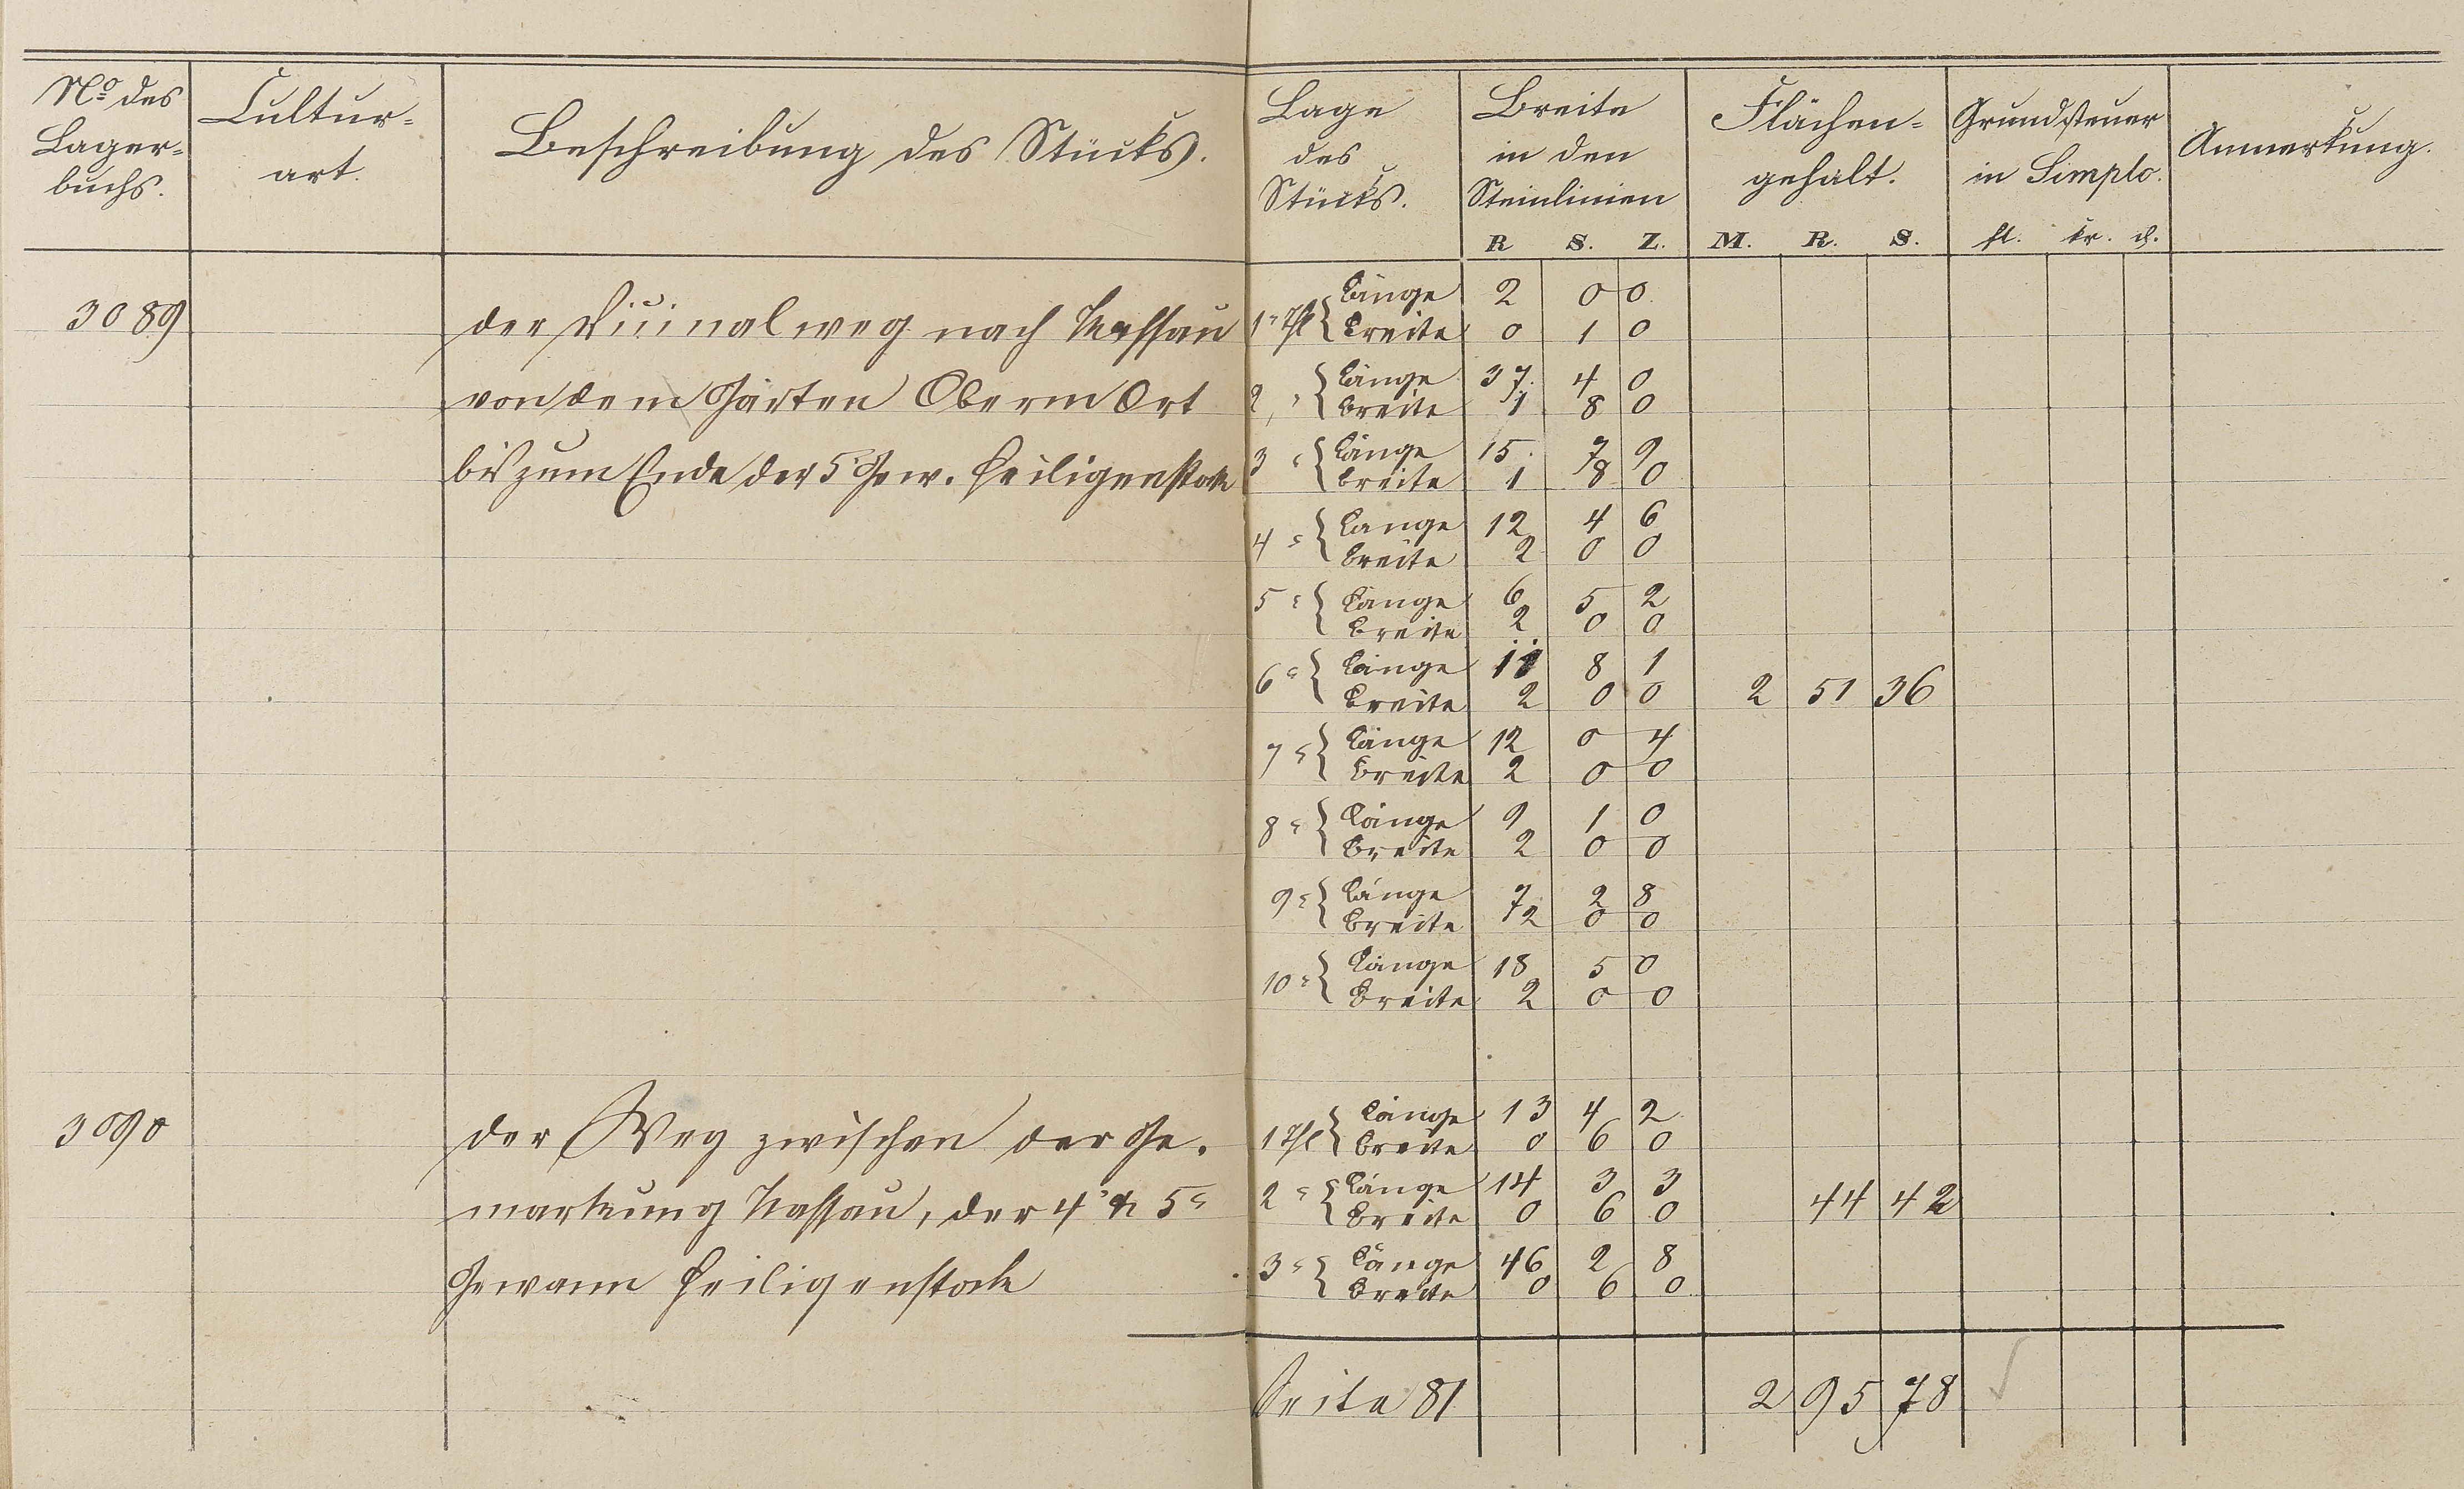 No des Lagerbuchs. Culturart. Beschreibung des Stücks. Lage des Stücks. Breite in den Steinlinien Flächengehalt. Grundsteuer in Simplo. Anmerkung.
R S. Z. M. R. S. fl. kr. d.
3089 der Vicinalweg nach Nassau
von dem Gärten Oberm Ort
bis zum Ende der 5r Gew. Heiligenstock
1r Thl Länge 2 0 0
Breite 0 1 0
2 " Länge 37. 4 0
Breite 1 8 0
3 " Länge 15. 7 9
Breite 1 8 0
4 " Länge 12 4 6
Breite 2 0 0
5 " Länge 6 5 2
Breite 2 0 0
6 " Länge 11 8 1
Breite 2 0 0 2 51 36
7 " Länge 12 0 4
Breite 2 0 0
8 " Länge 9 1 0
Breite 2 0 0
9 " Länge 7 2 8
Breite 2 0 0
10 " Länge 18 5 0
Breite 2 0 0
3090 der Weg zwischen der Ge-
markung Nassau, der 4r & 5r
Gewann Heiligenstock
1 Thl Länge 13 4 2
Breite 0 6 0
2 " Länge 14 3 3
Breite 0 6 0 44 42
3 " Länge 46 2 8
Breite 0 6 0
Seite 81 2 95 78